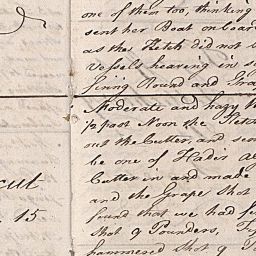 one of them too, thinking
sent her Boat onboard
as the Ketch did not
Vessels hearing in
firing Round and Gra
Moderate and hazy
½ past Noon the Ketch
out the Cutter, and sen
be one of
Cutter in and made
and the Grape Shot
found that we had
Shot 9 Pounders,
hammered Shot 9
cut
15